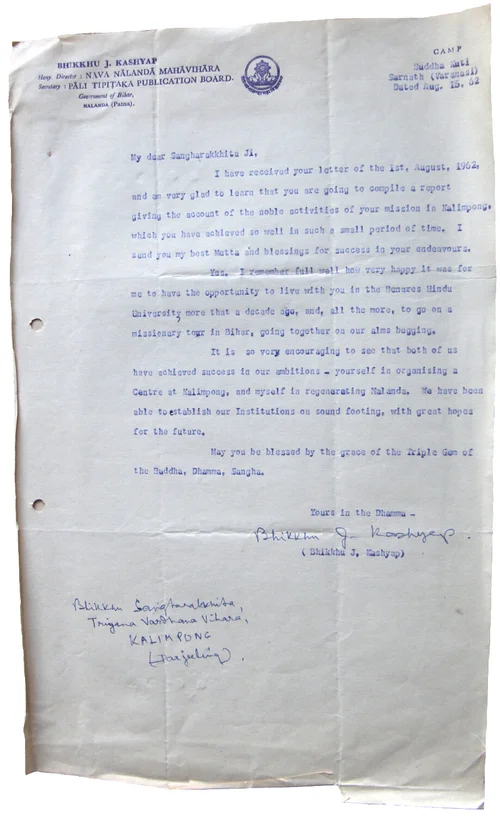 BHIKKHU J. KASHYAP
Hony. Director : NAVA NĀLANDĀ MAHĀVIHĀRA
Secretary : PĀLI TIPIṬAKA PUBLICATION BOARD.
Government of Bihar,
NALANDA (Patna).
CAMP
Buddha Kuti
Sarnath (Varanasi)
Dated Aug. 15, 62
My dear Sangharakkhita Ji,
I have received your letter of the 1st, August, 1962,
and am very glad to learn that you are going to compile a report
giving the account of the noble activities of your mission in Kalimpong,
which you have achieved so well in such a small period of time. I
send you my best Metta and blessings for success in your endeavours.
Yes. I remember full well how very happy it was for
me to have the opportunity to live with you in the Benares Hindu
University more that a decade ago, and, all the more, to go on a
missionary tour in Bihar, going together on our alms begging.
It is so very encouraging to see that both of us
have achieved success in our ambitions - yourself in organising a
Centre at Kalimpong, and myself in regenerating Nalanda. We have been
able to establish our Institutions on sound footing, with great hopes
for the future.
May you be blessed by the grace of the Triple Gem of
the Buddha, Dhamma, Sangha.
Yours in the Dhamma -
Bhikkhu J. Kashyap.
( Bhikkhu J. Kashyap)
Bhikkhu Sangharakkhita,
Triyana Vardhana Vihara,
KALIMPONG
(Darjeeling).